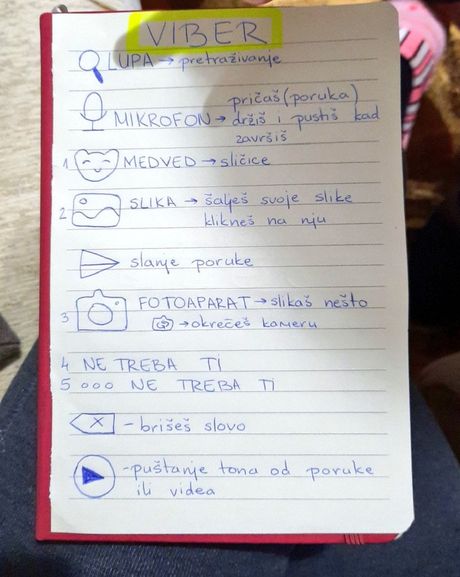 VIBER
LUPA → pretraživanje
pričaš (poruka)
MIKROFON → držiš i pustiš kad
završiš
1 MEDVED → sličice
2 SLIKA → šalješ svoje slike
klikneš na nju
slanje poruke
3 FOTOAPARAT → slikaš nešto
→ okrećeš kameru
4 NE TREBA TI
5 ooo NE TREBA TI
X - brišeš slovo
- puštanje tona od poruke
ili videa